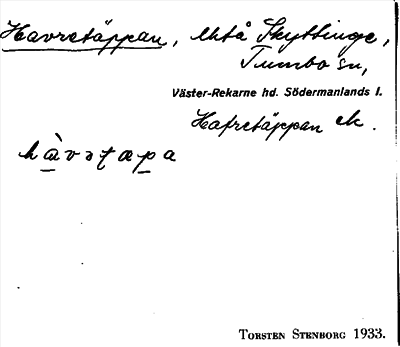 Havretäppan, Åhtå Skyttinge,
Tumbo sn,
Väster-Rekarne hd. Södermanlands l.
Hafretäppan ek.
TORSTEN STENBORG 1933.